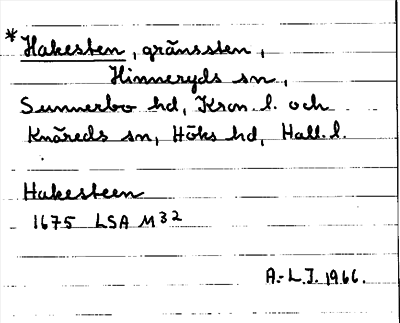 *Hakesten, gränssten,
Hinneryds sn,
Sunnerbo hd, Kron. l. och
Knäreds sn, Höks hd, Hall. l.
Hakesteen
1675 LSA M32
A.-L.J. 1966.